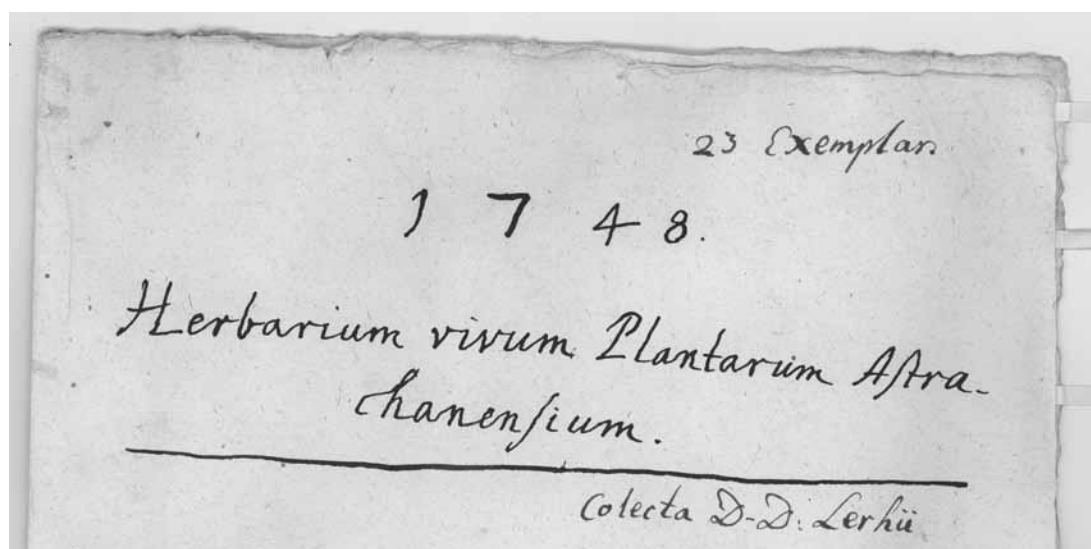 23 Exemplar.
1748.
Herbarium vivum Plantarum Aſtra-
chanenſium.
Colecta D-D: Lerhii